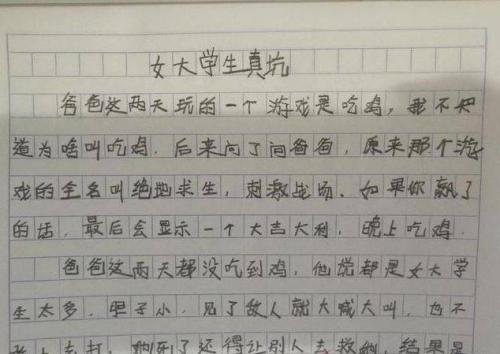 女大学生真坑
爸爸这两天玩的一个游戏是吃鸡,我不知
道为啥叫吃鸡.后来问了问爸爸,原来那个游
戏的全名叫绝地求生,刺激战场.如果你赢了
的话,最后会显示一个大吉大利,晚上吃鸡.
爸爸这两天都没吃到鸡,他说都是女大学
生太多,胆子小,见了敌人就大喊大叫,也不
上去打,她死了还得让别人去救她,结果是